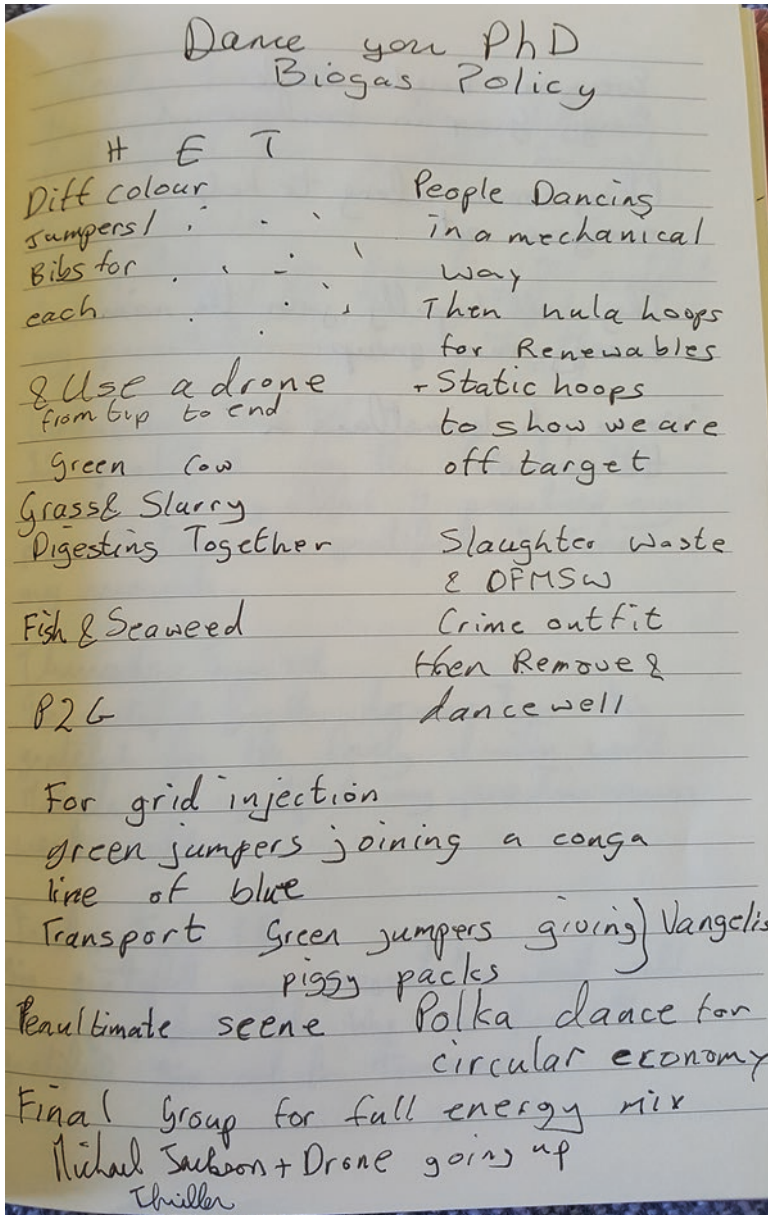 Dance you PhD
Biogas Policy
H E T
Diff colour
Jumpers/
Bibs for
each
& Use a drone
from top to end
Green Cow
Grass & Slurry
Digesting Together
Fish & Seaweed
P2G
People Dancing
in a mechanical
way
Then hula hoops
for Renewables
+ Static hoops
to show we are
off target
Slaughter Waste
& OFMSW
Crime outfit
then Remove &
dance well
For grid injection
green jumpers joining a conga
line of blue
Transport Green jumpers giving } Vangelis
piggy packs
Penultimate seene Polka dance for
circular economy
Final Group for full energy mix
Michael Jackson + Drone going up
Thriller